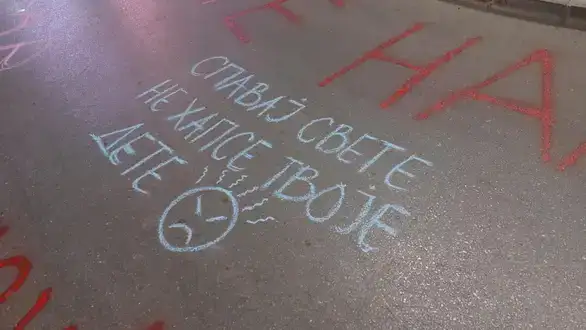 СПАВАЈ СВЕТЕ
НЕ ХАПСЕ ТВОЈЕ
ДЕТЕ
НА